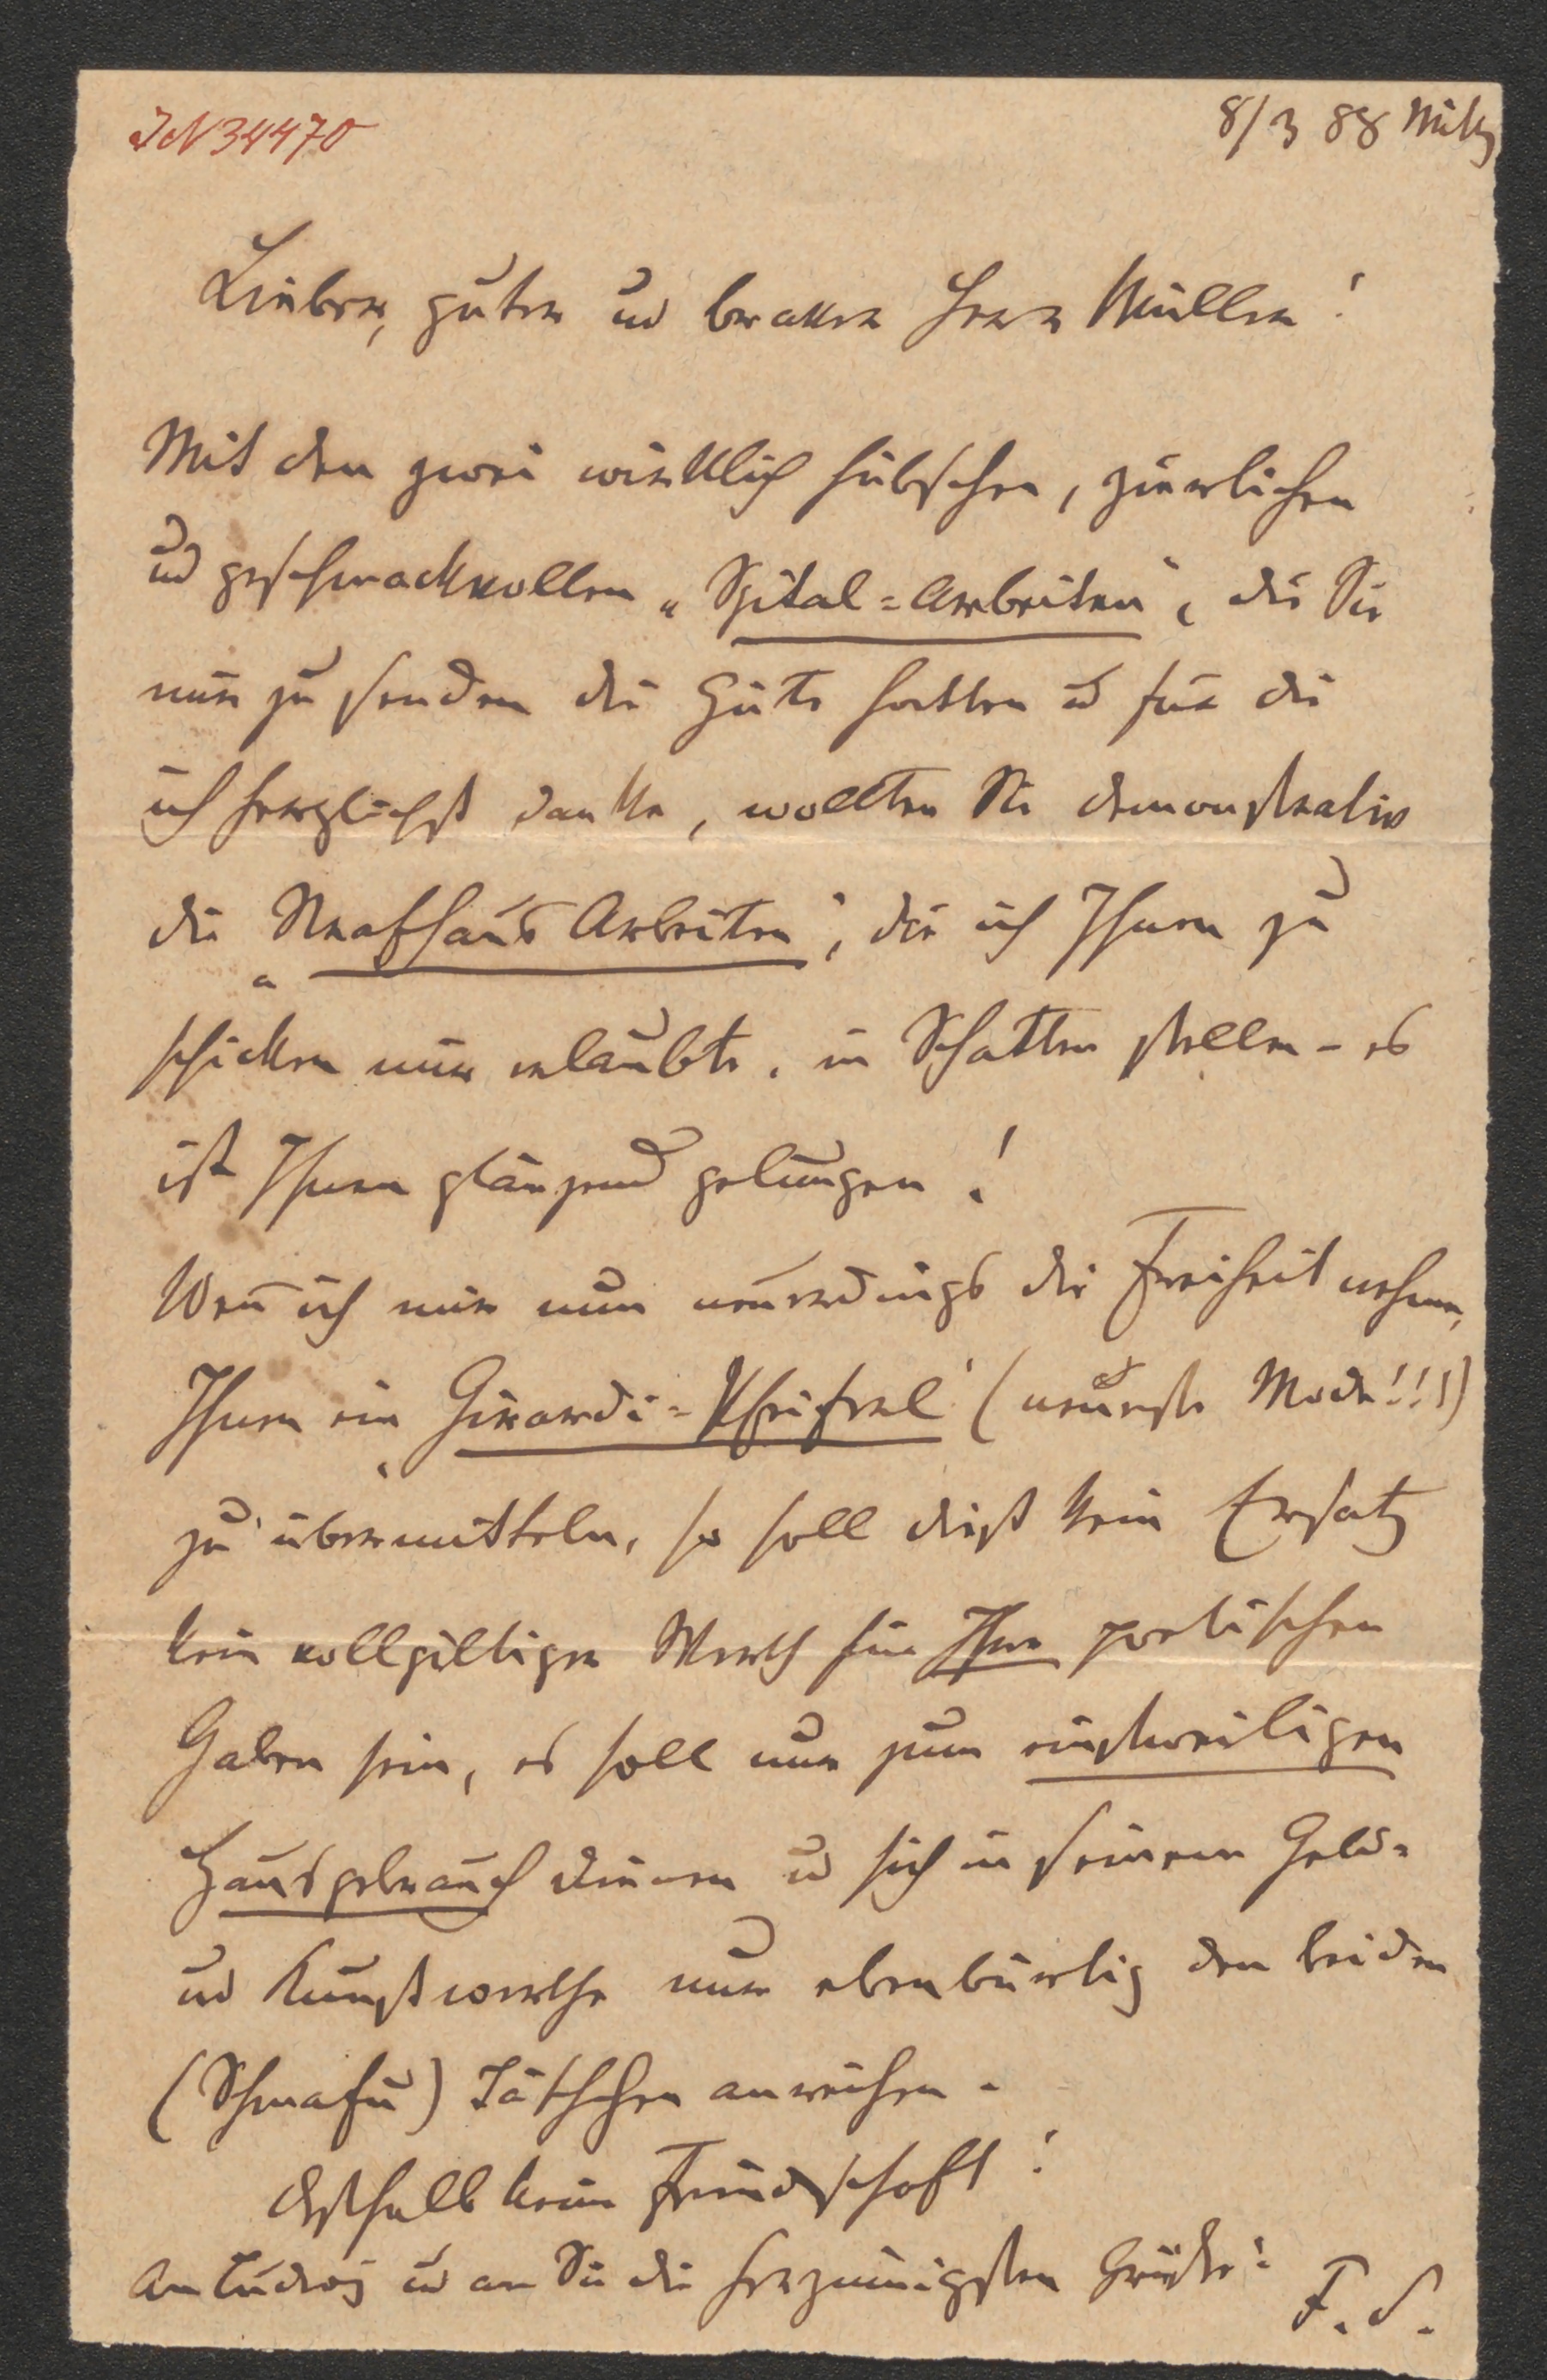 IN 34470
8/3 88
Lieber, guter und braver Herr Müller!
Mit den zwei wirklich hübschen, zierlichen
und geschmackvollen „Spital=Arbeiten", die Sie
mir zu senden die Güte hatten ud für die
ich herzlichst danke, wollten Sie demonstrativ
die „Strafhaus Arbeiten", die ich Ihnen zu
schicken mir erlaubte, in Schatten stellen – es
ist Ihnen glänzend gelungen!
Wen̄ ich mir nun neuerdings die Freiheit nehme,
Ihnen ein „Girardi=Pfeiferl" (neueste Mode!!!)
zu übermitteln, so soll dieß kein Ersatz
kein vollgiltiger Werth für Ihre poetischen
Gaben sein, es soll nur zum einstweiligen
Hausgebrauch dienen ud sich in seinem Geld=
ud Kunstwerthe nur ebenbürtig den beiden
(Schmafu) anreihen.
deßhalb keine Feindschaft!
An Ludwig ud an Sie die herzinnigsten Grüße!
F. S.